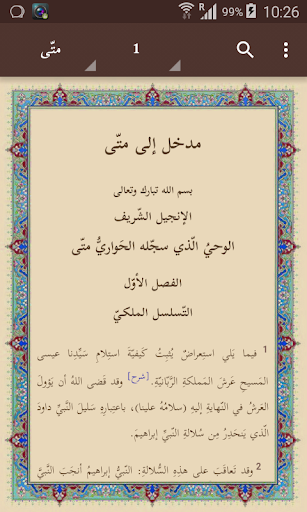 99% 10:26
متّى 1
مدخل إلى متّى
بسم الله تبارك وتعالى
الإنجيل الشّريف
الوحيُ الّذي سجّله الحَواريُّ متّى
الفصل الأوّل
التّسلسل الملكيّ
1 فيما يَلي استِعراضٌ يُثبِتُ كَيفيّةَ استِلامِ سَيِّدِنا عيسى
المَسيحِ عَرشَ المَملكةِ الرَّبّانِيّةِ. [شرح] وقد قَضى اللهُ أن يَؤولَ
العَرشُ في النّهايةِ إليهِ (سلامُهُ علينا)، باعتِبارِهِ سَليلَ النَّبيِّ داودَ
الّذي يَنحَدِرُ مِن سُلالةِ النّبيِّ إبراهيمَ.
2 وقد تَعاقَبَ على هذِهِ السُّلالةِ: النَّبيُّ إبراهيمُ أنجَبَ النَّبيَّ